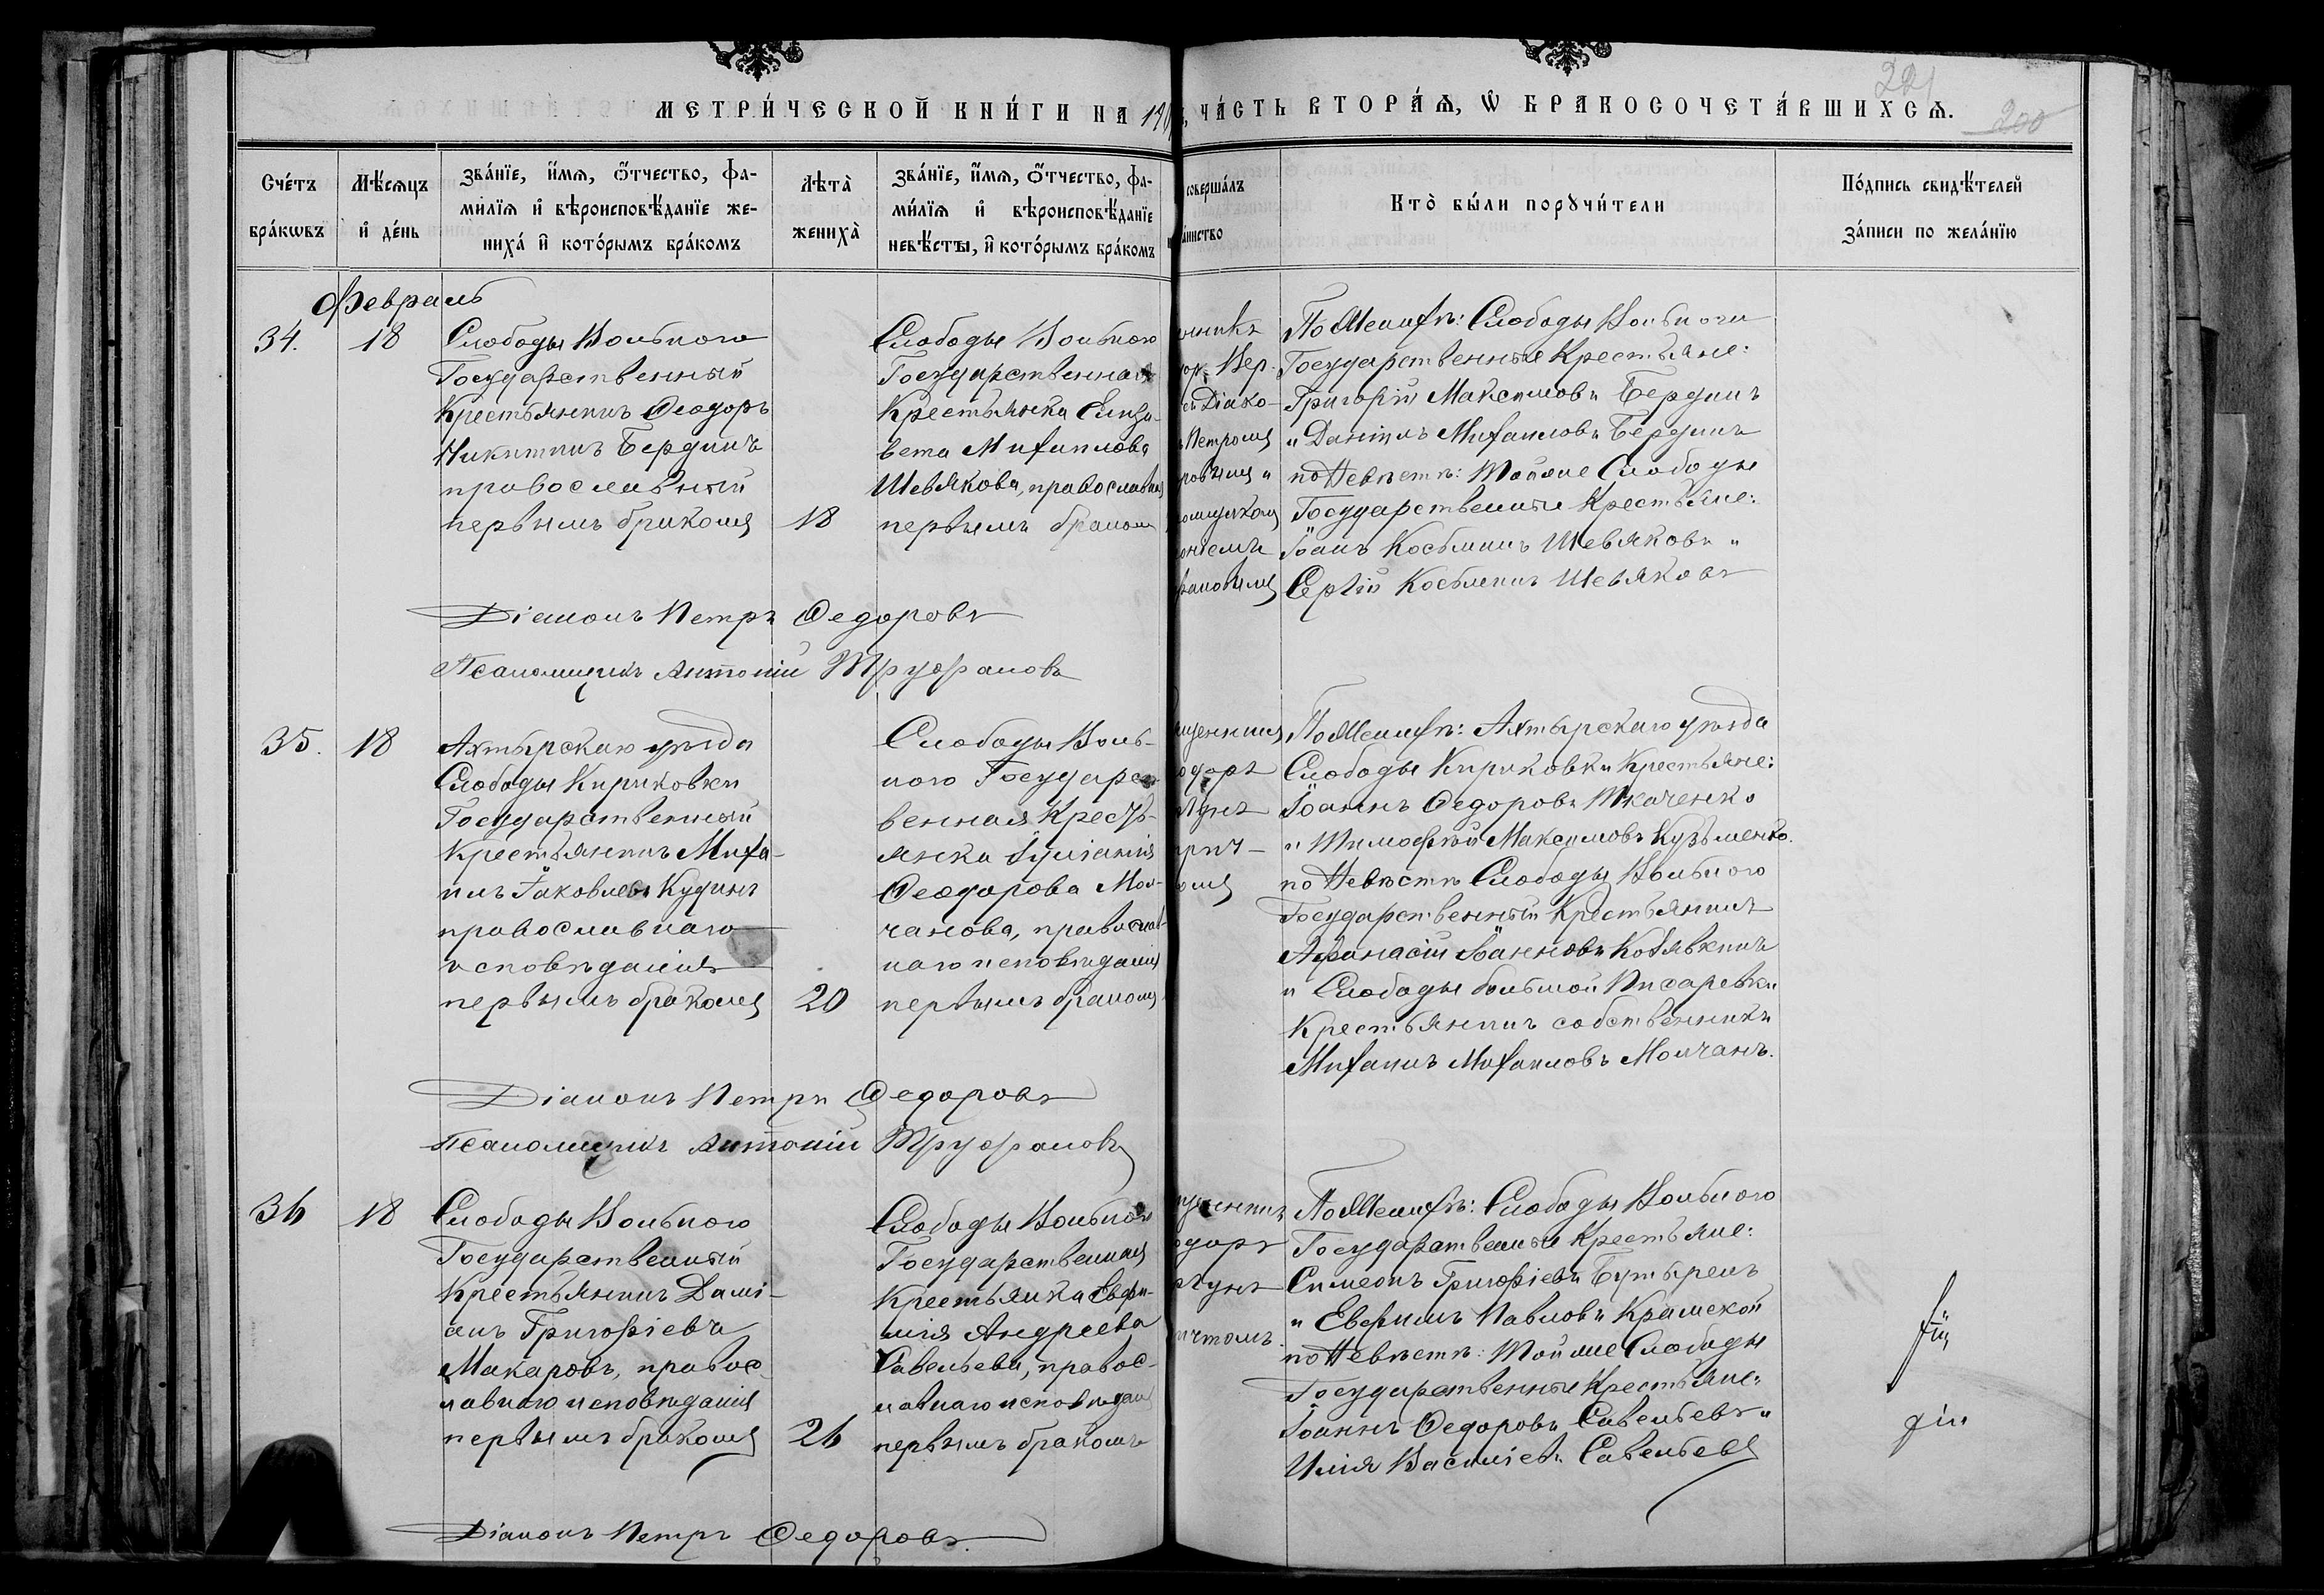 МЕТРИ́ЧЕСКОЙ КНИ́ГИ НА 190
, ЧА́СТЬ ВТОРА́Ѧ, Ѡ҆ БРАКОСОЧЕТА́ВШИХСѦ.
221
200
Сче́тъ бра́кѡвъ
Мѣ́сѧцъ и҆ де́нь
Зва́нїе, и҆́мѧ, ѻ҆́тчество, фа-
ми́лїѧ и҆ вѣроисповѣ́данїе же-
ниха́ и҆ кото́рымъ бра́комъ
Лѣта̀ жениха̀
Зва́нїе, и҆́мѧ, ѻ҆́тчество, фа-
ми́лїѧ и҆ вѣроисповѣ́данїе
невѣ́сты, и҆ кото́рымъ бра́комъ
соверша́лъ
а́инство
Кто̀ бы́ли порꙋчи́тели
По́дпись свидѣ́телей
за́писи по жела́нїю
Февраль
34.
18
Слободы Вольного
Государственный
Крестьянинъ Ѳеодоръ
Никитинъ Бердинъ
православный
первымъ бракомъ
18
Слободы Вольного
Государственная
Крестьянка Елиза-
вета Михаилова
Шевякова, православная
первымъ бракомъ
Вер.
Діако-
Петромъ
По Женихѣ: Слободы Вольного
Государственные Крестьяне:
Григорій Максимовъ Бердинъ
и Даніилъ Михаиловъ Бердинъ
по Невѣстѣ: Той же Слободы
Государственные Крестьяне:
Іоанъ Косьминъ Шевяковъ и
Сергій Косьминъ Шевяковъ
Діаконъ Петръ Ѳедоровъ
Псаломщикъ Антоній Труфановъ
35.
18
Ахтырскаго уѣзда
Слободы Кириковки
Государственный
Крестьянинъ Миха-
илъ Іаковлевъ Кудинъ
православнаго
исповѣданія
первымъ бракомъ
20
Слободы Воль-
ного Государст
венная Кресть-
янка Іуліанія
Ѳеодорова Мол-
чанова, православ-
наго исповѣданія
первымъ бракомъ
По Женихѣ: Ахтырскаго уѣзда
Слободы Кириковки Крестьяне:
Іоаннъ Ѳедоровъ Ткаченко
и Тимофѣй Максимовъ Кузьменко.
по Невѣстѣ Слободы Вольного
Государственный Крестьянинъ
Афанасій Іоанновъ Козявкинъ
и Слободы большой Писаревки
Крестьянинъ собственникъ
Михаилъ Михаиловъ Молчанъ.
Діаконъ Петръ Ѳедоровъ
Псаломщикъ Антоній Труфановъ
36
18
Слободы Вольного
Государственный
Крестьянинъ Дамі-
анъ Григоріевъ
Макаровъ, правос-
лавнаго исповѣданія
первымъ бракомъ
26
Слободы Вольного
Государственная
Крестьянка Евфи-
мія Андреева
Савельева, правос-
лавнаго исповѣдан
первымъ бракомъ
По Женихѣ: Слободы Вольного
Государственные Крестьяне:
Симеонъ Григоріевъ Бутыринъ
и Евфимъ Павловъ Крамской
по Невѣстѣ: Той же Слободы
Государственные Крестьяне:
Іоаннъ Ѳедоровъ Савельевъ и
Илія Василіевъ Савельевъ
Діаконъ Петръ Ѳедоровъ.